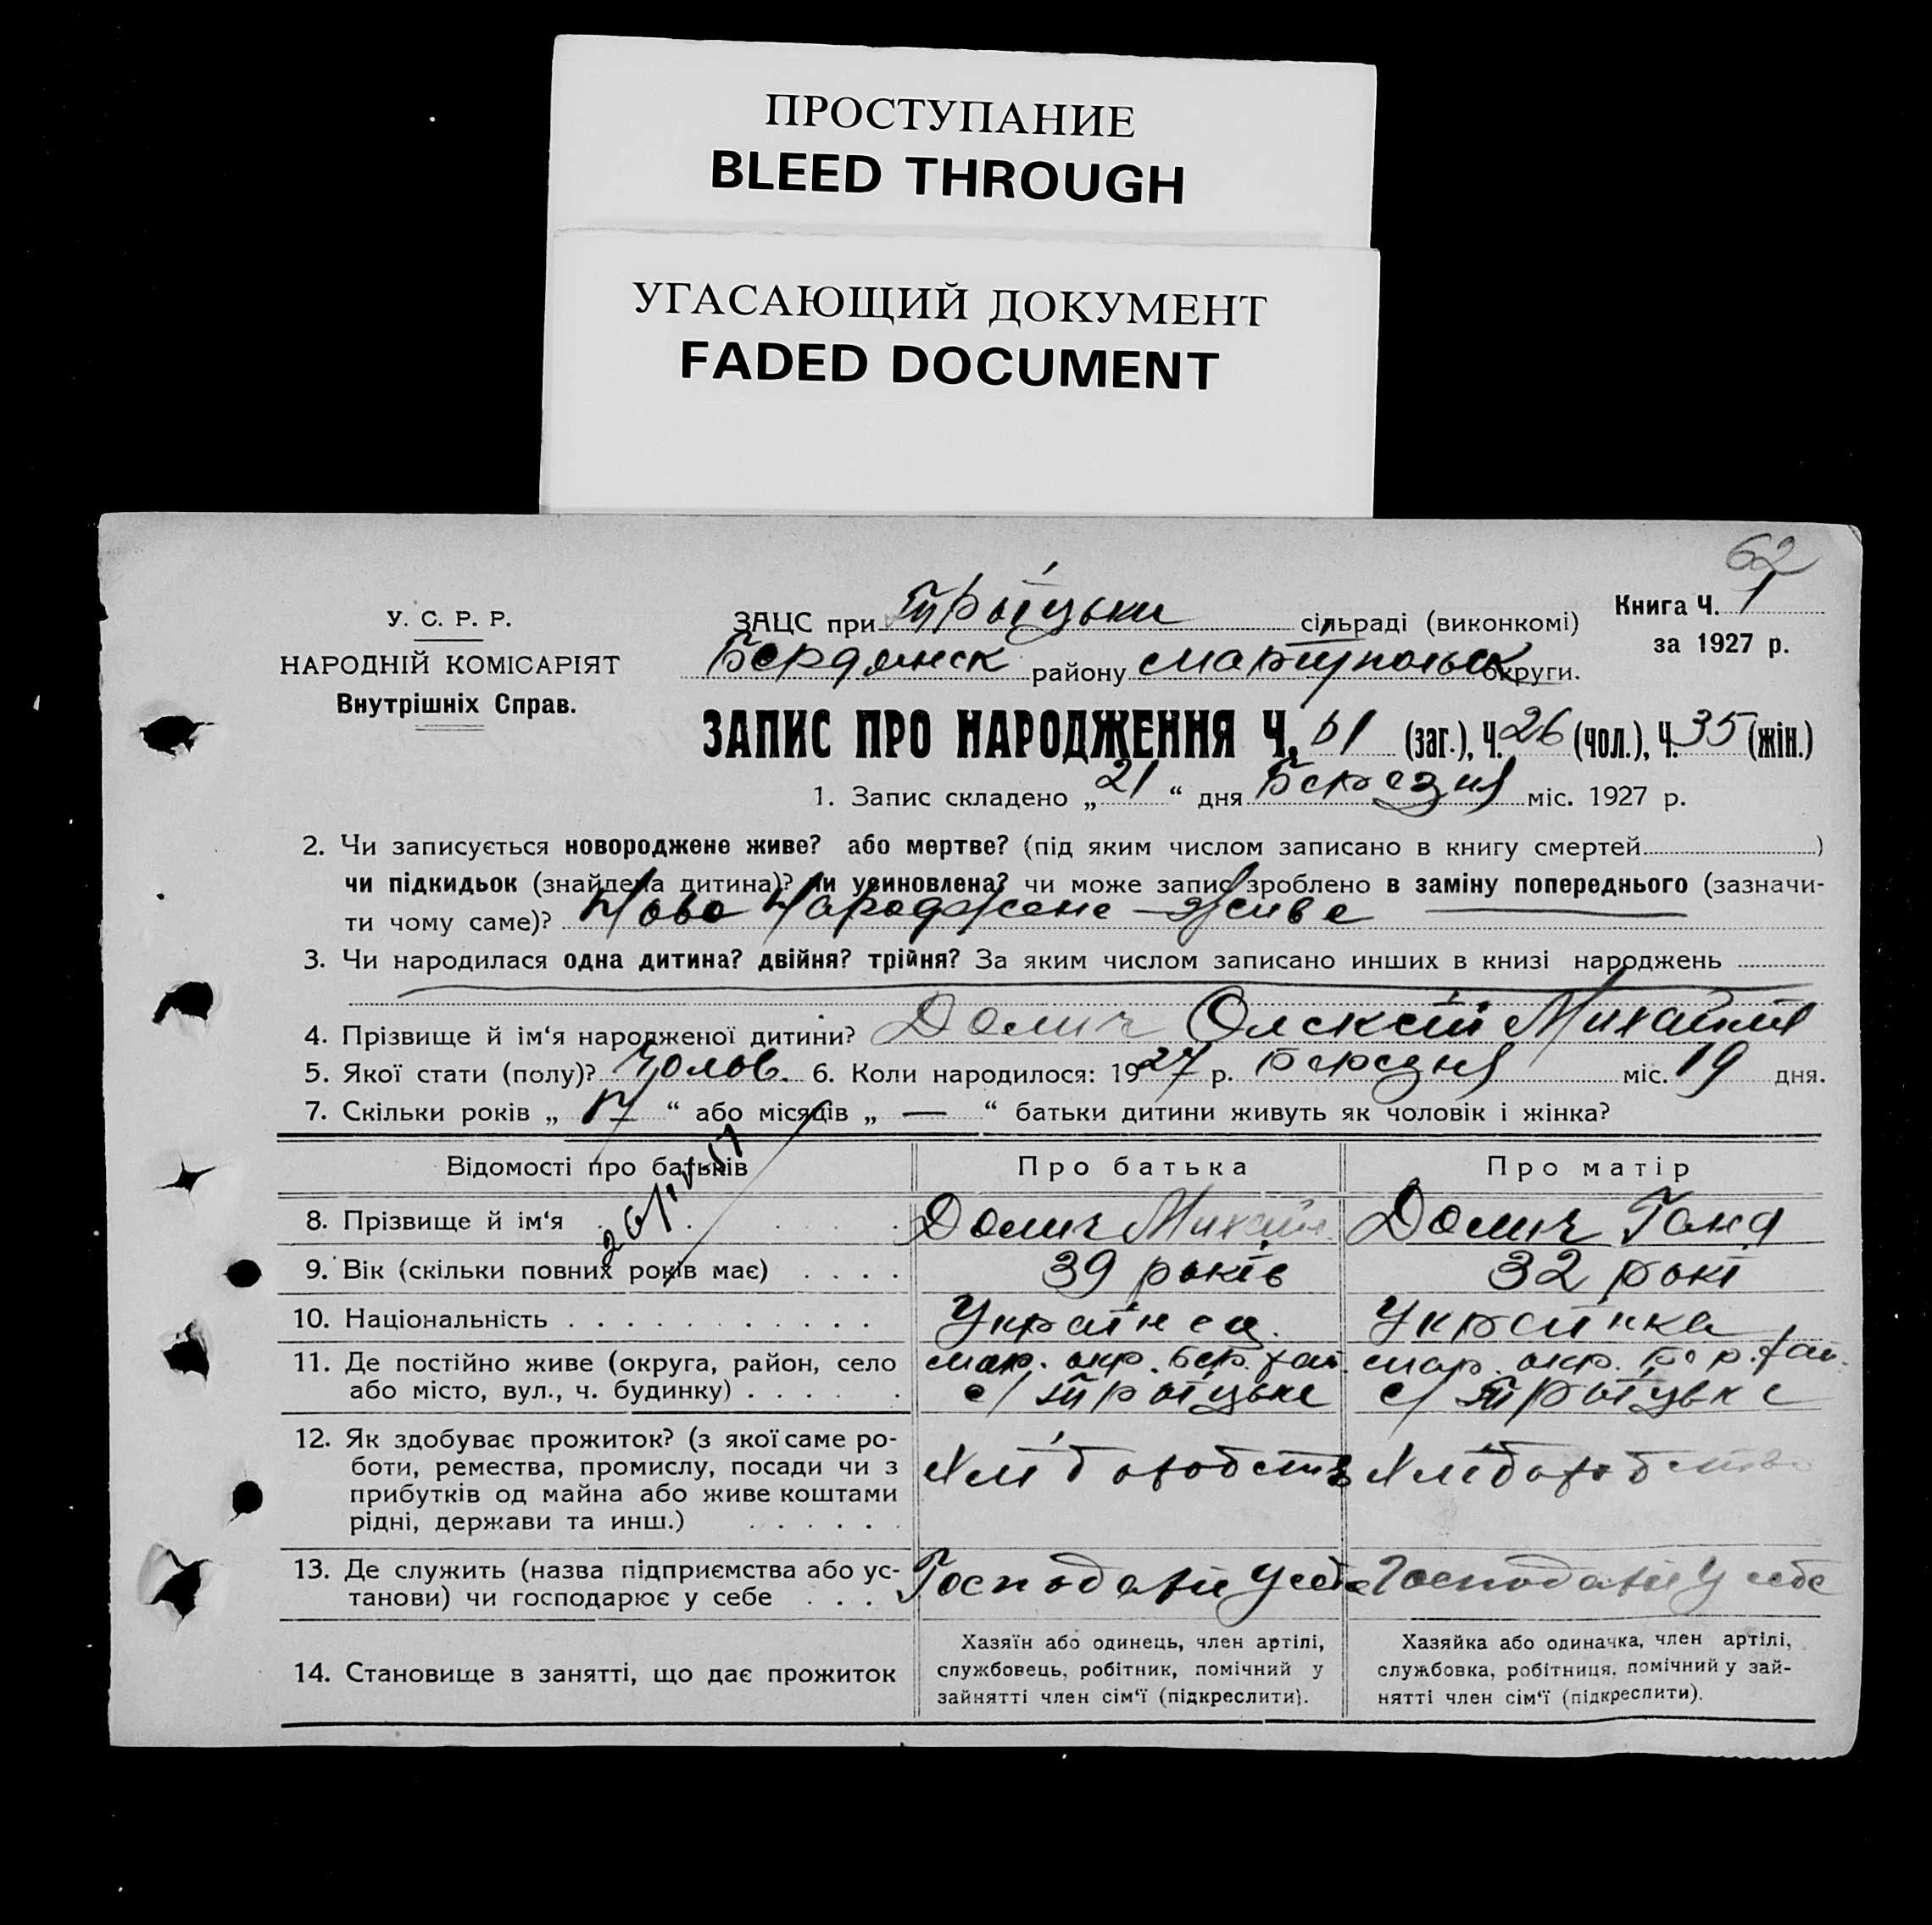 ПРОСТУПАНИЕ
BLEED THROUGH
УГАСАЮЩИЙ ДОКУМЕНТ
FADED DOCUMENT
62
У. С. Р. Р.
НАРОДНІЙ КОМІСАРІЯТ
Внутрішніх Справ.
ЗАЦС при Троїцьки сільраді (виконкомі)
Бердянск району округи.
Книга Ч. 1
за 1927 р.
ЗАПИС ПРО НАРОДЖЕННЯ Ч. 61 (заг.), Ч. 26 (чол.), Ч. 35 (жін.)
1. Запис складено „21“ дня Березня міс. 1927 р.
2. Чи записується новороджене живе? або мертве? (під яким числом записано в книгу смертей )
чи підкидьок (знайдена дитина)? чи усиновлена? чи може запис зроблено в заміну попереднього (зазначи-
ти чому саме)? Ново Народжене Живе
3. Чи народилася одна дитина? двійня? трійня? За яким числом записано инших в книзі народжень
4. Прізвище й ім‘я народженої дитини? Долич Олексій
5. Якої стати (полу)? Чолов. 6. Коли народилося: 1927 р. Березня міс. 19 дня.
7. Скільки років „17“ або місяців „—“ батьки дитини живуть як чоловік і жінка?
Відомості про батьків Про батька Про матір
8. Прізвище й ім‘я Долич Михайл Долич Ганя
9. Вік (скільки повних років має) 39 років 32 рокі
10. Національність Українец. Українка
11. Де постійно живе (округа, район, село мар. окр. Бер. рай. мар. окр. Бер. рай.
або місто, вул., ч. будинку) с/ Троїцьке с/ Троїцьке
12. Як здобуває прожиток? (з якої саме ро-
боти, ремества, промислу, посади чи з Хліборобств Хліборобство
прибутків од майна або живе коштами
рідні, держави та инш.)
13. Де служить (назва підприємства або ус- Господарй у себе Господарй у себе
танови) чи господарює у себе
14. Становище в занятті, що дає прожиток
Хазяїн або одинець, член артілі,
службовець, робітник, помічний у
зайнятті член сім‘ї (підкреслити).
Хазяйка або одиначка, член артілі,
службовка, робітниця, помічний у зай-
нятті член сім‘ї (підкреслити).